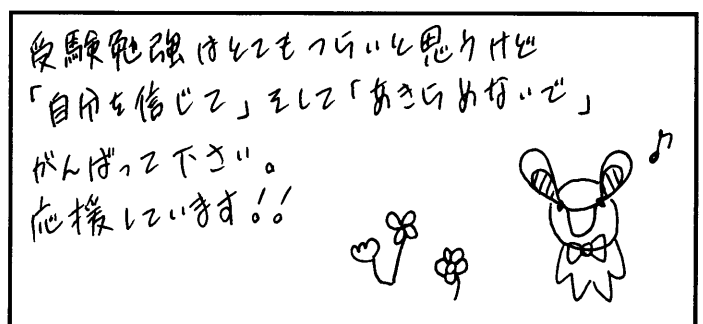 受験勉強はとてもつらいと思うけど
「自分を信じて」そして「あきらめないで」
がんばって下さい。
応援しています!!